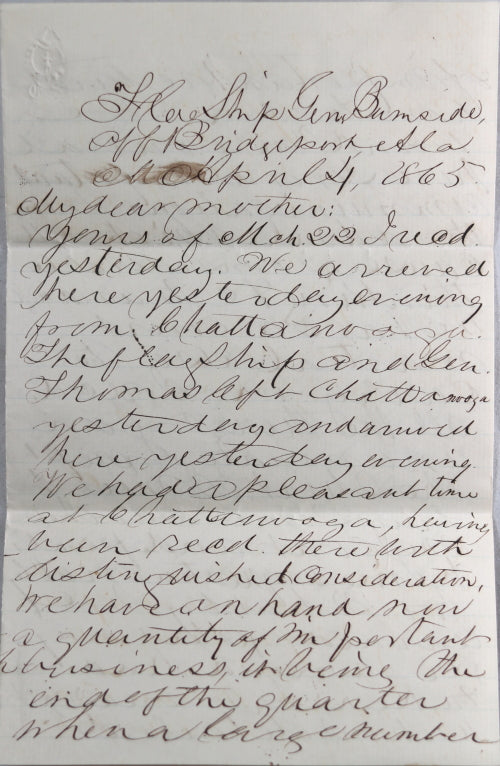 Flag Ship Gen Burnside,
Off Bridgeport, Ala.
April 4, 1865
My dear mother:
Yours of Mch 22 I recd.
yesterday. We arrived
here yesterday evening
from Chattanooga.
The flag Ship and Gen.
Thomas left Chattanooga
yesterday and arrived
here yesterday evening.
We had a pleasant time
at Chattanooga, having
been recd. there with
distinguished consideration.
We have on hand now
a quantity of important
business, it being the
end of the quarter
when a large number